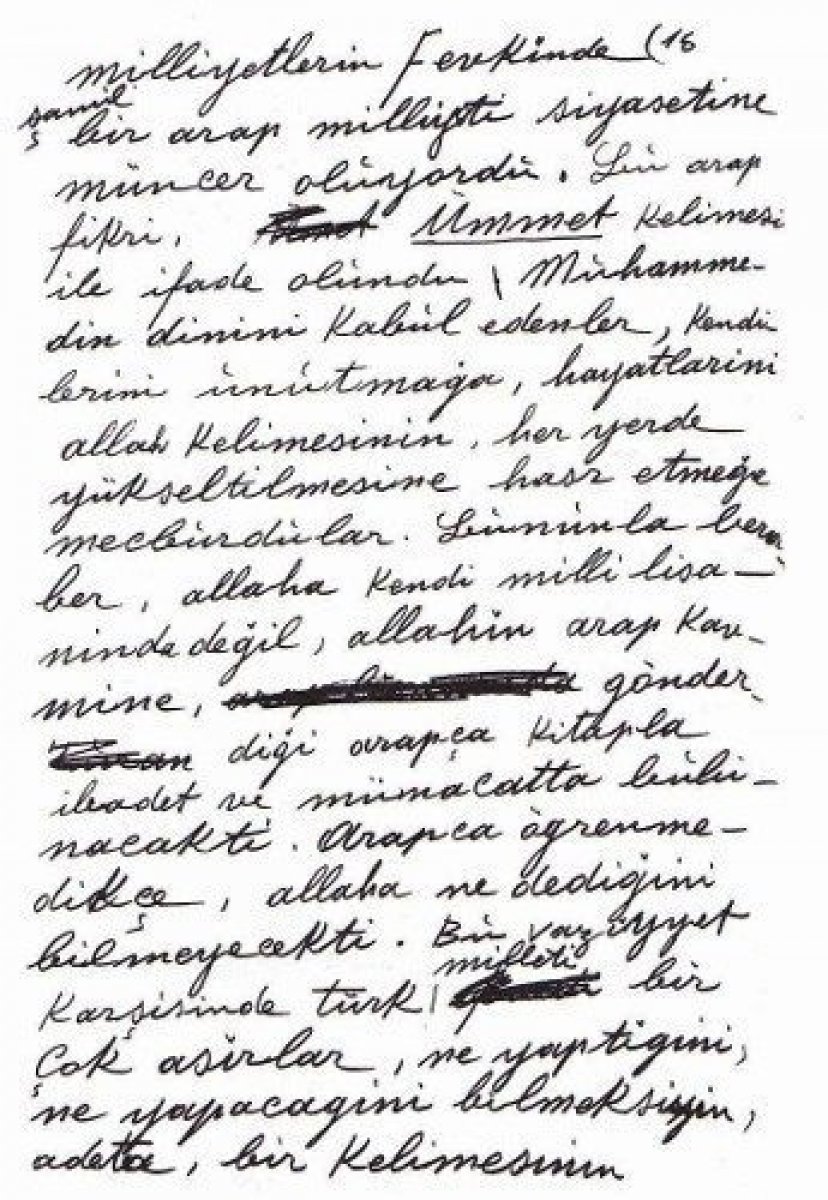 milliyetlerin fevkinde (16
şamil
bir arap milliyeti siyasetine
müncer oluyordu. Bu arap
fikri, Ümmet kelimesi
ile ifade olundu \ Muhamme-
din dinini kabul edenler, kendi
lerini unutmağa, hayatlarini
allah kelimesinin, her yerde
yükseltilmesine hasr etmeğe
mecburdular. Bununla bera-
ber, allaha kendi milli lisa-
ninda değil, allahin arap kav-
mine, gönder-
diği arapça kitapla
ibadet ve münacatta bulu-
nacakti. Arapca öğrenme-
dikçe, allaha ne dediğini
bilmeyecekti. Bu vaziyyet
karşisinde türk milleti bir
çok asirlar, ne yaptigini,
ne yapacagini bilmeksiyin,
adeta, bir kelimesinin